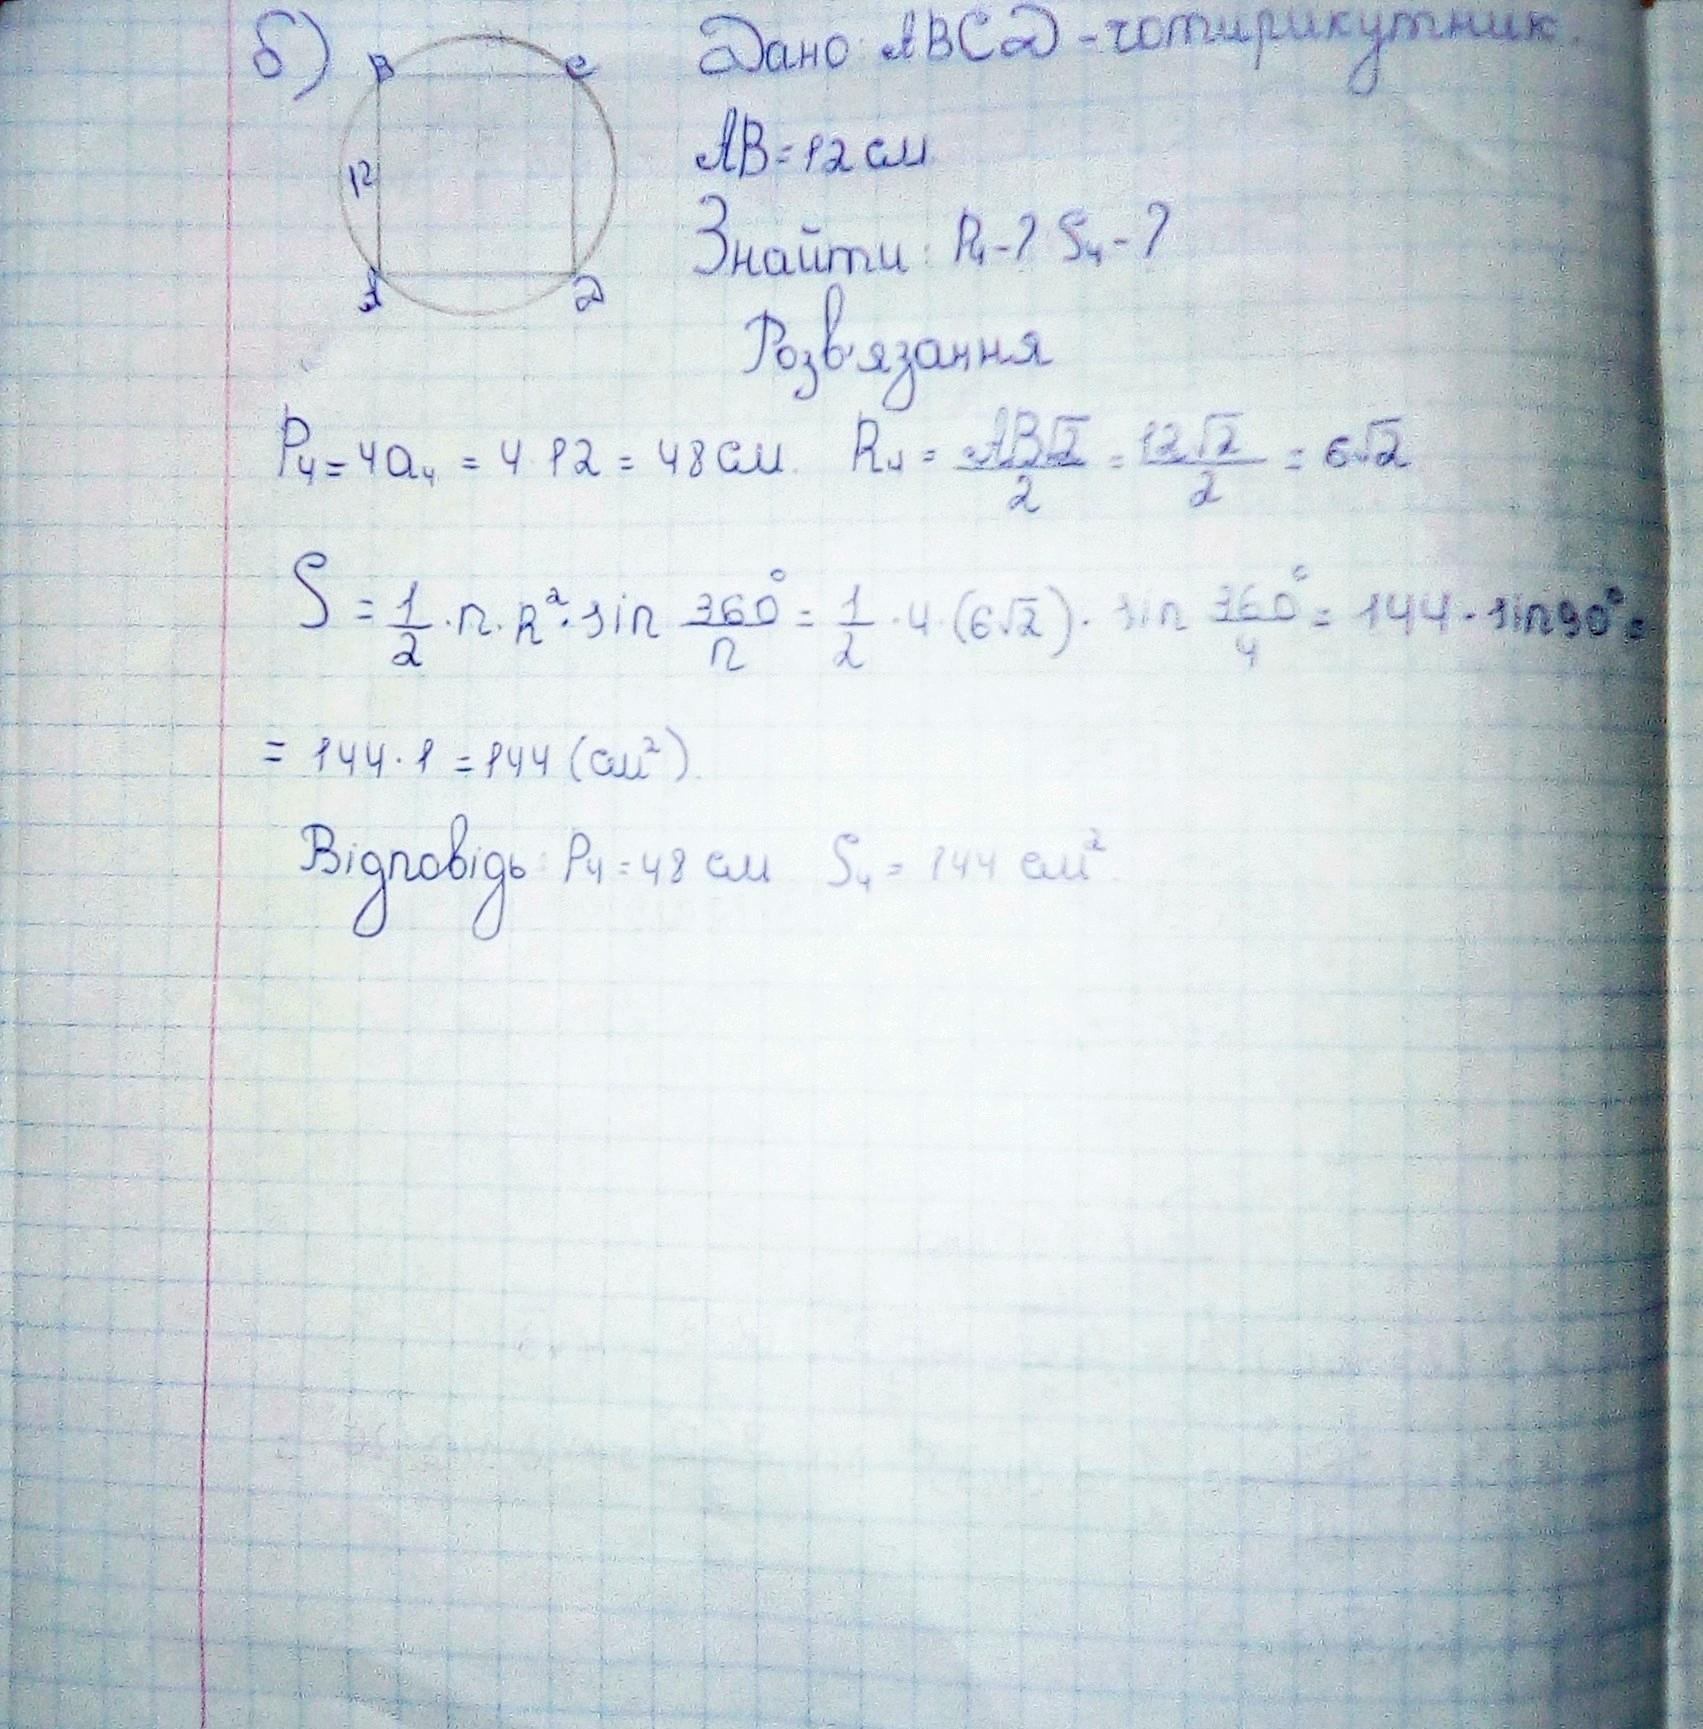 б) B C Дано: ABCD - чотирикутник.
12 AB = 12 см
A D Знайти: P₄ - ? S₄ - ?
Розв'язання
P₄ = 4a₄ = 4·12 = 48 см. R₄ = AB√2/2 = 12√2/2 = 6√2
S = 1/2 · n · R² · sin 360°/n = 1/2 · 4 · (6√2) · sin 360°/4 = 144 · sin90° =
= 144 · 1 = 144 (см²).
Відповідь: P₄ = 48 см S₄ = 144 см².